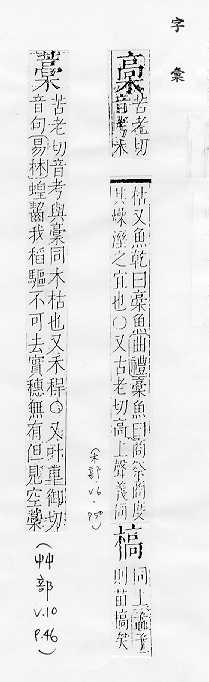 字彙
槀 苦老切
音考木
枯又魚乾曰槀魚曲禮槀魚曰商祭商度
其燥溼之宜也○又古老切高上聲義同
槁 同上孟子
則苗槁矣
(木部 v.6 P.50)
藁 苦老切音考與槀同木枯也又禾稈○又叶舉御切
音句易林蝗齧我稻驅不可去實穗無有但見空藁
(艸部 v.10 P.46)